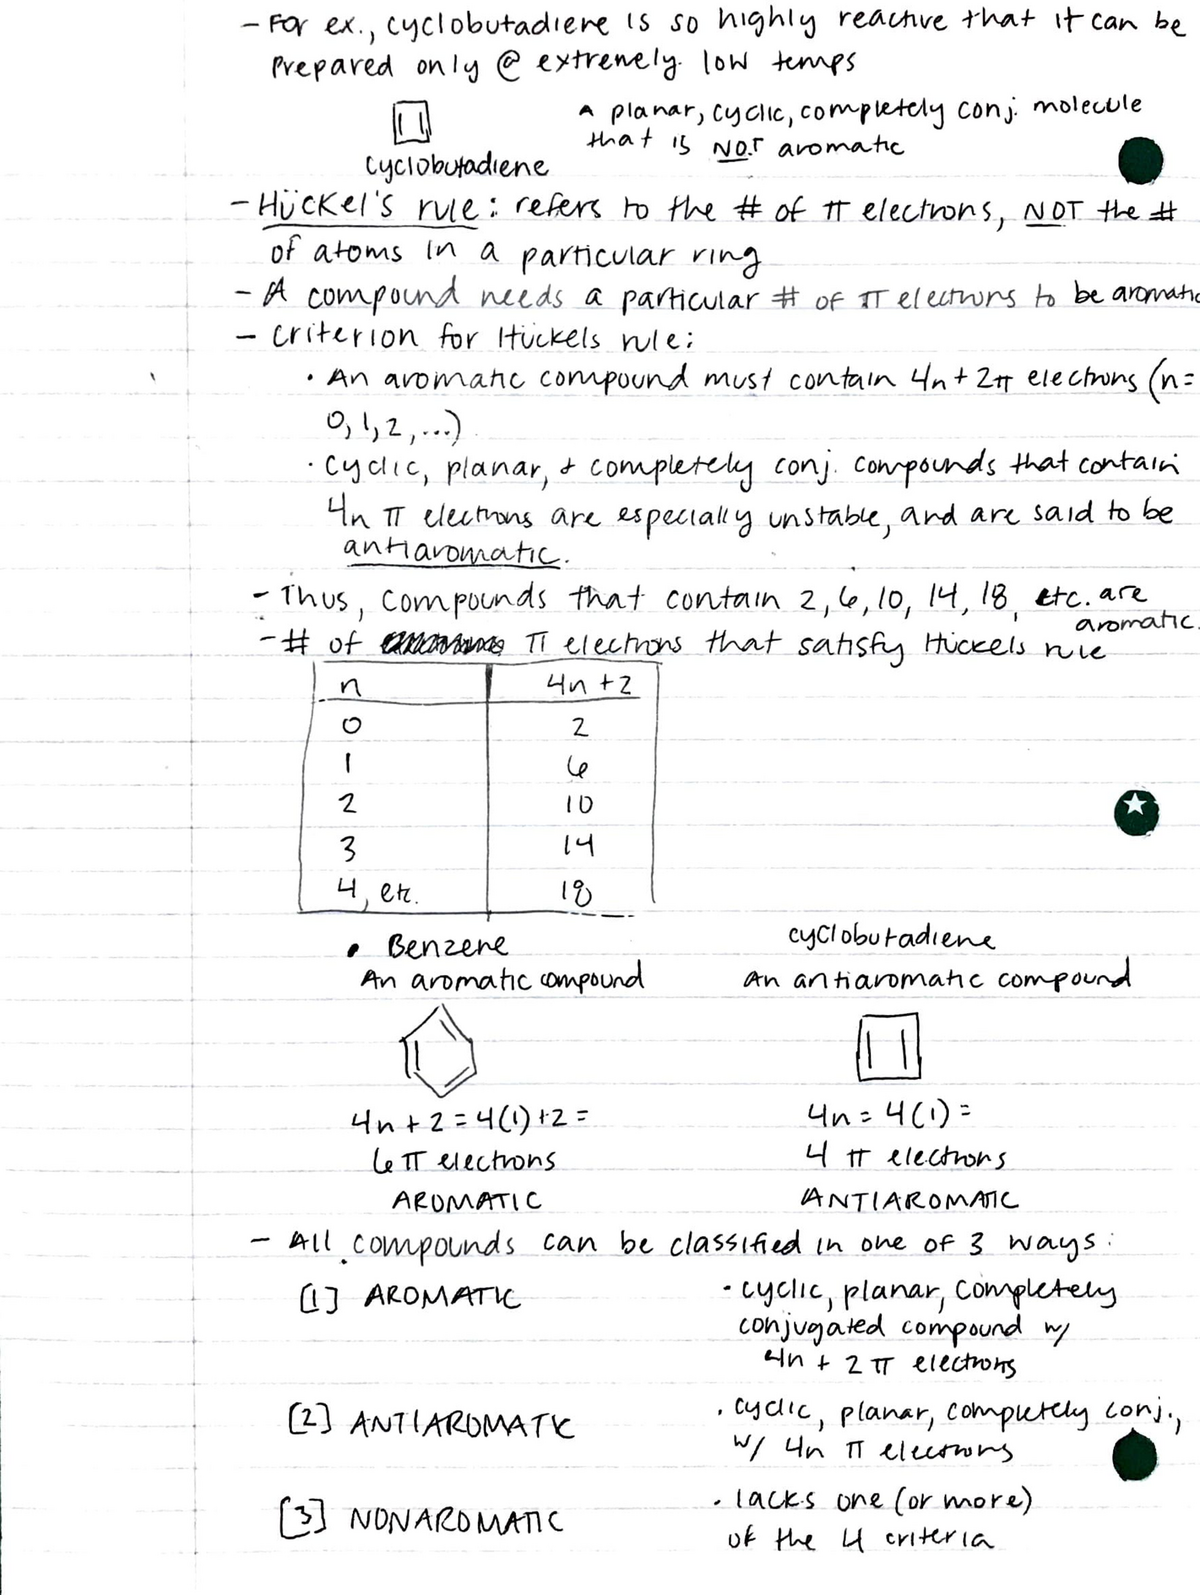 - For ex., cyclobutadiene is so highly reactive that it can be
prepared only @ extremely low temps
A planar, cyclic, completely conj. molecule
that is NOT aromatic
cyclobutadiene
- Hückel's rule: refers to the # of π electrons, NOT the #
of atoms in a particular ring
- A compound needs a particular # of π electrons to be aromatic
- Criterion for Hückels rule:
• An aromatic compound must contain 4n + 2π electrons (n=
0, 1, 2, ...)
• Cyclic, planar, & completely conj. compounds that contain
4n π electrons are especially unstable, and are said to be
antiaromatic.
- Thus, compounds that contain 2, 6, 10, 14, 18, etc. are
aromatic.
- # of π electrons that satisfy Hückels rule
n 4n + 2
0 2
1 6
2 10
3 14
4, etc. 18
• Benzene cyclobutadiene
An aromatic compound An antiaromatic compound
4n + 2 = 4(1) + 2 = 4n = 4(1) =
6 π electrons 4 π electrons
AROMATIC ANTIAROMATIC
- All compounds can be classified in one of 3 ways:
[1] AROMATIC • cyclic, planar, completely
conjugated compound w/
4n + 2 π electrons
[2] ANTIAROMATIC • cyclic, planar, completely conj.,
w/ 4n π electrons
[3] NONAROMATIC • lacks one (or more)
of the 4 criteria